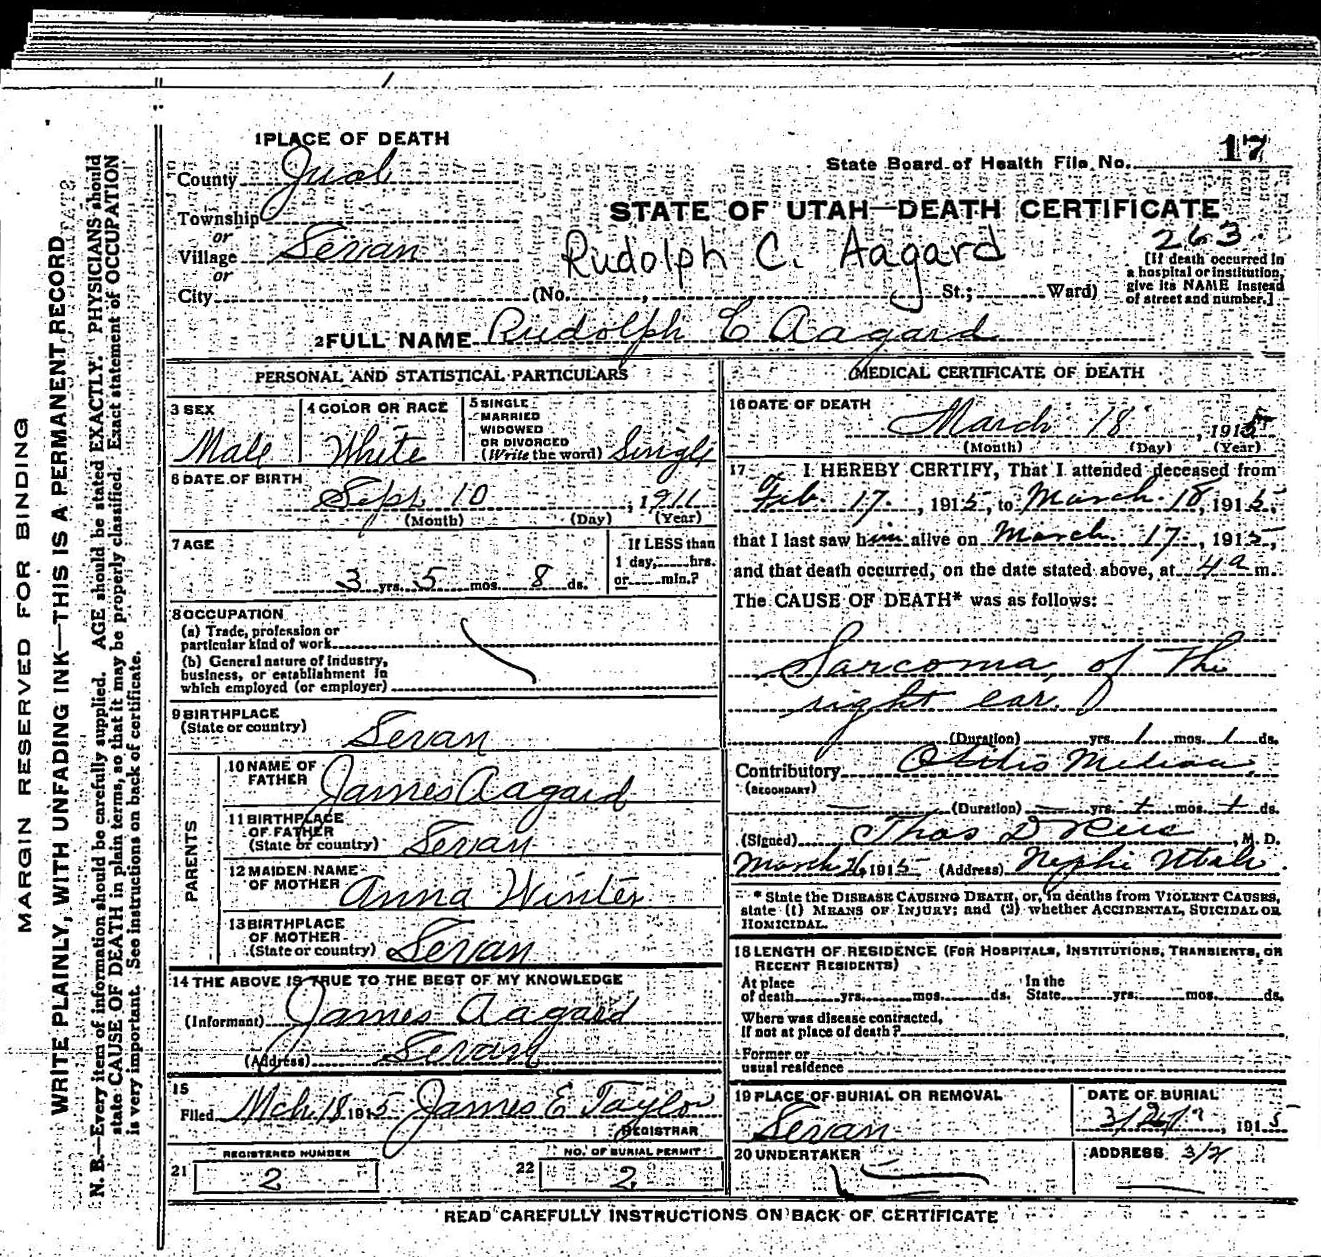 1 PLACE OF DEATH
County Juab
Township
or
Village Levan
or
City (No. , St.; Ward)
State Board of Health File No. 17
STATE OF UTAH—DEATH CERTIFICATE
263
Rudolph C. Aagard
[If death occurred in
a hospital or institution,
give its NAME instead
of street and number.]
2 FULL NAME Rudolph C Aagard
PERSONAL AND STATISTICAL PARTICULARS
3 SEX
Male
4 COLOR OR RACE
White
5 SINGLE
MARRIED
WIDOWED
OR DIVORCED
(Write the word) Single
6 DATE OF BIRTH
Sept 10, 1911
(Month) (Day) (Year)
7 AGE
3 yrs. 5 mos. 8 ds.
If LESS than
1 day, hrs.
or min.?
8 OCCUPATION
(a) Trade, profession or
particular kind of work
(b) General nature of industry,
business, or establishment in
which employed (or employer)
9 BIRTHPLACE
(State or country) Levan
PARENTS
10 NAME OF
FATHER James Aagard
11 BIRTHPLACE
OF FATHER
(State or country) Levan
12 MAIDEN NAME
OF MOTHER Anna Winter
13 BIRTHPLACE
OF MOTHER
(State or country) Levan
14 THE ABOVE IS TRUE TO THE BEST OF MY KNOWLEDGE
(Informant) James Aagard
(Address) Levan
15
Filed Mch. 18 1915 James E Taylor
REGISTRAR
21 REGISTERED NUMBER
2
22 NO. OF BURIAL PERMIT
2
MEDICAL CERTIFICATE OF DEATH
16 DATE OF DEATH
March 18, 1915
(Month) (Day) (Year)
17 I HEREBY CERTIFY, That I attended deceased from
Feb. 17, 1915, to March 18, 1915,
that I last saw him alive on March 17, 1915,
and that death occurred, on the date stated above, at 4 a m.
The CAUSE OF DEATH* was as follows:
Sarcoma, of the
right ear.
(Duration) yrs. 1 mos. 1 ds.
Contributory Otitis Media
(SECONDARY)
(Duration) yrs. mos. ds.
(Signed) Thos D Rees, M. D.
March 1915 (Address) Nephi Utah.
* State the DISEASE CAUSING DEATH, or, in deaths from VIOLENT CAUSES,
state (1) MEANS OF INJURY; and (2) whether ACCIDENTAL, SUICIDAL OR
HOMICIDAL.
18 LENGTH OF RESIDENCE (FOR HOSPITALS, INSTITUTIONS, TRANSIENTS, OR
RECENT RESIDENTS)
At place In the
of death yrs. mos. ds. State yrs. mos. ds.
Where was disease contracted,
If not at place of death?
Former or
usual residence
19 PLACE OF BURIAL OR REMOVAL
Levan
DATE OF BURIAL
, 1915
20 UNDERTAKER
ADDRESS
READ CAREFULLY INSTRUCTIONS ON BACK OF CERTIFICATE
MARGIN RESERVED FOR BINDING
WRITE PLAINLY, WITH UNFADING INK—THIS IS A PERMANENT RECORD
N. B.—Every item of information should be carefully supplied. AGE should be stated EXACTLY. PHYSICIANS should
state CAUSE OF DEATH in plain terms, so that it may be properly classified. Exact statement of OCCUPATION
is very important. See instructions on back of certificate.